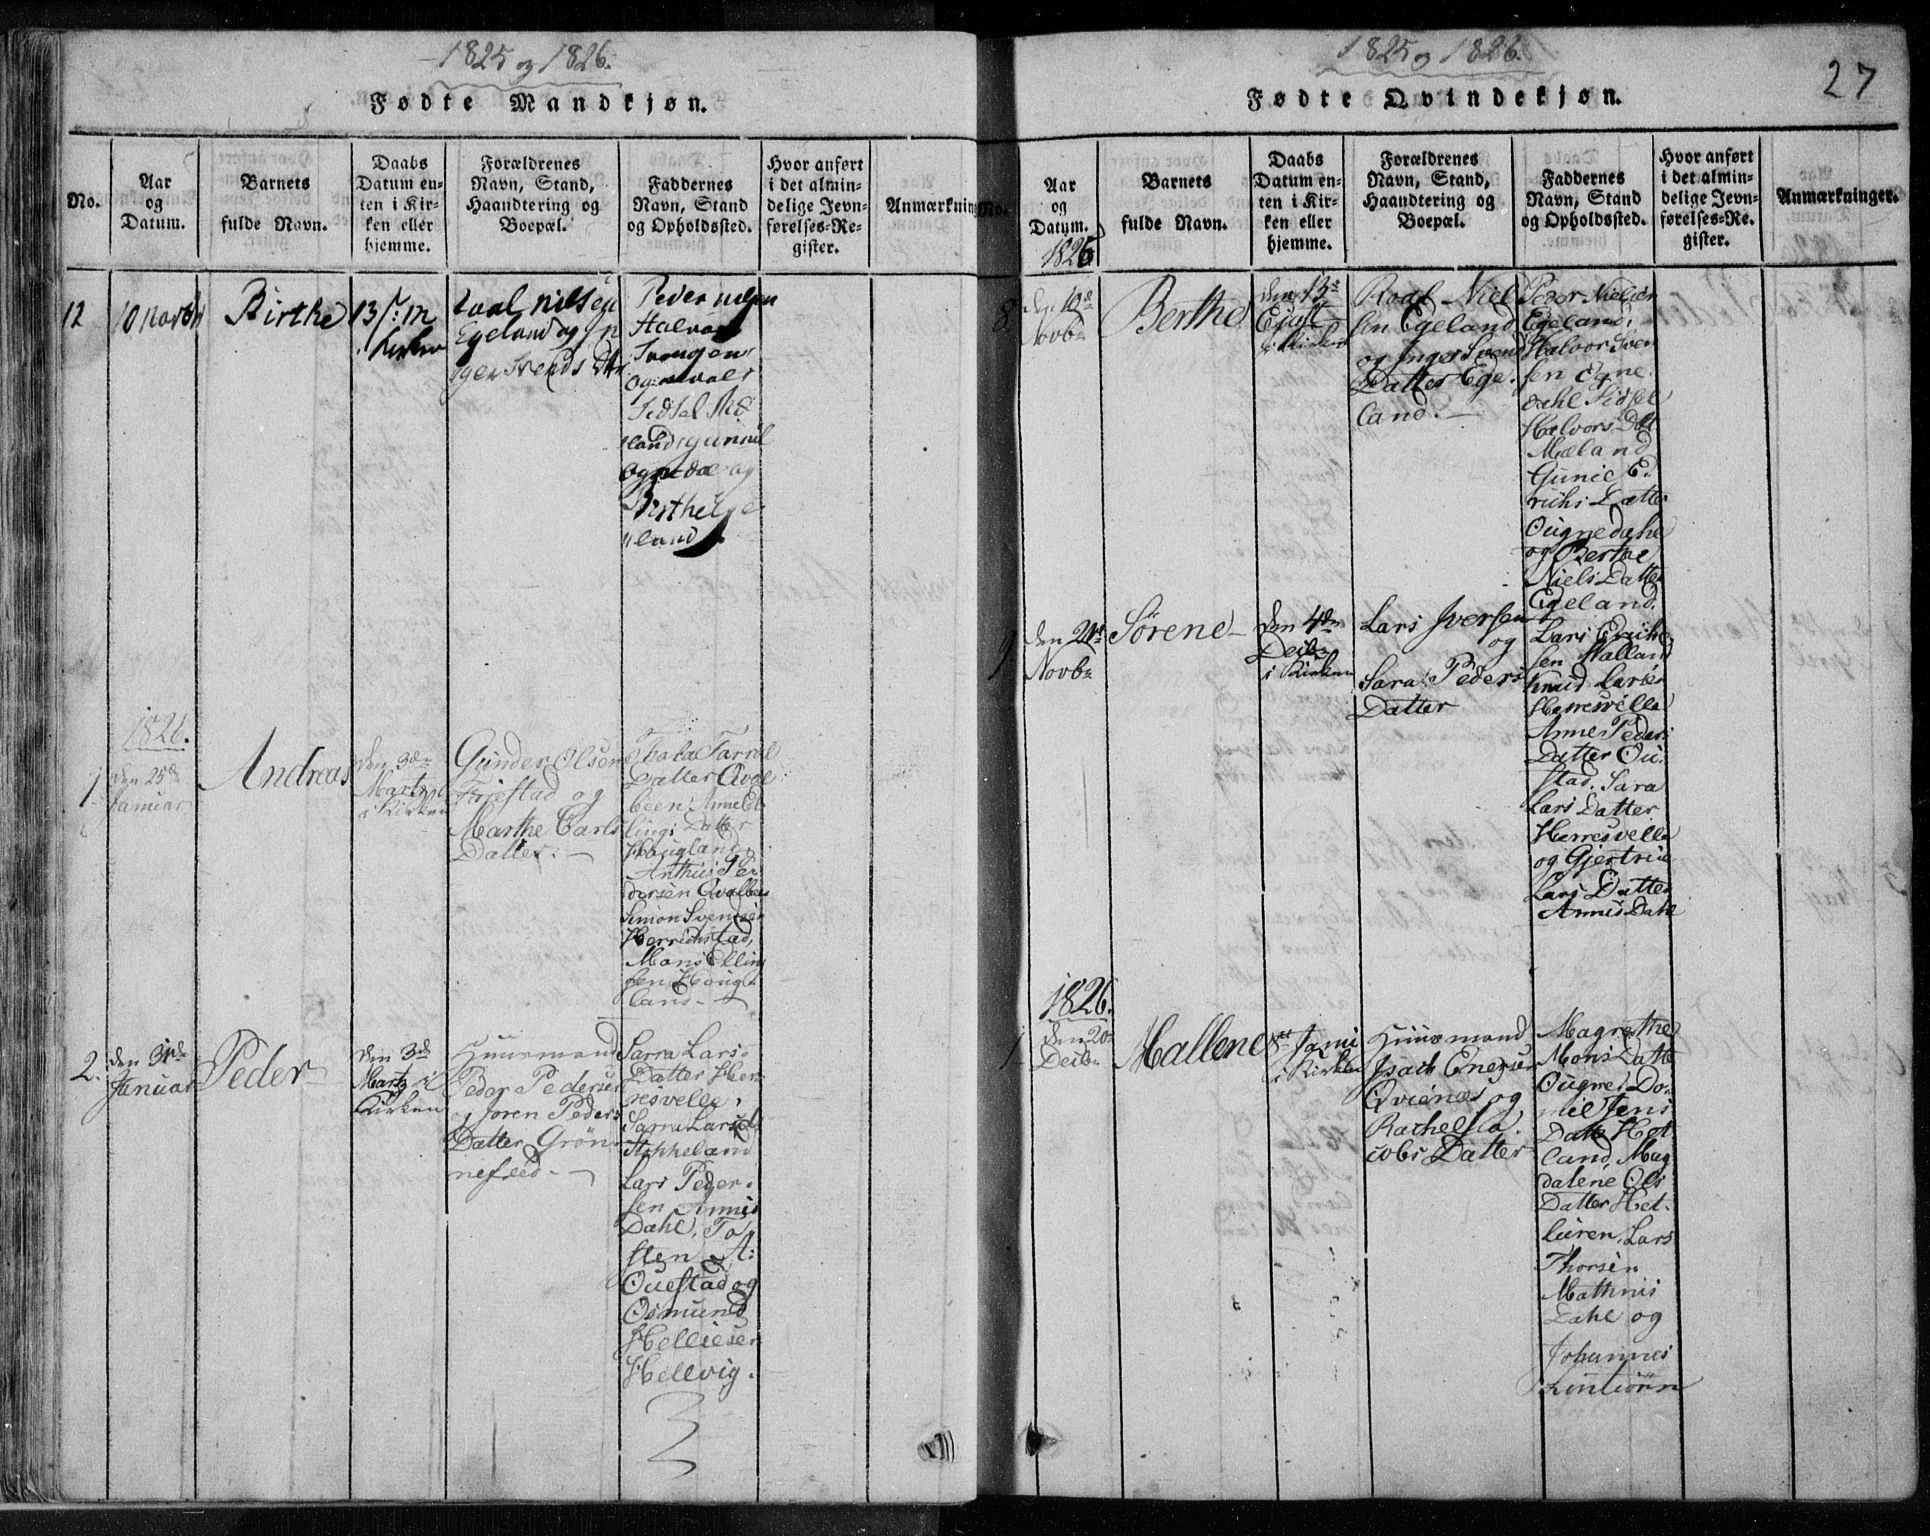 1825 og 1826.
Fødte Mandkjøn.
No.
Aar
og
Datum.
Barnets
fulde Navn.
Daabs
Datum en-
ten i Kir-
ken eller
hjemme.
Forældrenes
Navn, Stand,
Haandtering og
Boepæl.
Faddernes
Navn, Stand
og Opholdssted.
Hvor anført
i det almin-
delige Jevn-
førelses-Re-
gister.
Anmærkning
12
10 novbr
Birthe
13
Kirken
nilsen
Egeland og In
ger Svends Dttr
Peder nilsen
Halvor
Sidsel Mæ
land, gunnil
Ognedal og
Birthe Ege
land
1826.
1.
den 25de
Januar
Andreas
den 3de
Marty
i Kirken
Gunder Olsen
Fojestad og
Marthe Carls
Datter. —
Datter Qval
been Anne El
lings Datter
Hougland,
Anthus Pe
dersen Qvalbeen
Simon Svendsen
Herrichstad,
Mons Elling
sen Hougl
land —
2.
den 31de
Januar
Peder
den 3de
Marty i
Kirken
Huusmand
Peder Pedersen
og Joren Peders
Datter Grøn
nefled —
Sarra Lars
Datter Her
resvelle,
Sarra Larsd
Stoppeland
Lars Peder
sen Annis
Dahl, To
sten A:
Ouestad og
Osmund
Helliesen
Hellvig.
3
1825 og 1826.
27
Fødte Qvindekjøn.
No.
Aar
og
Datum.
1826
Barnets
fulde Navn.
Daabs
Datum en-
ten i Kir-
ken eller
hjemme.
Forældrenes
Navn, Stand,
Haandtering og
Boepæl.
Faddernes
Navn, Stand
og Opholdssted.
Hvor anført
i det almin-
delige Jevn-
førelses-Re-
gister.
Anmærkninger.
8.
den 10de
Novbr
Berthe
den 13de
Ejust
i Kirken
Roal Niel
sen Egeland
og Inger Svend
Datter Ege
land. —
Peder Nielsen
Egeland,
Halvor Sven
sen Ogne
dahl Sidsel
Halvors Datt
Mæland
Gunil E
richs Datter
Ougnedahl
og Berthe
Niels Datter
Egeland.
9
den 21de
Novbr
Sørene —
den 4de
Decbr
i Kirken
Lars Iversen
og
Sara Peders
Datter
Lars Erich
sen Walland
Knud Larsen
Herresvelle
Anne Peders
Datter Ou
stad. Sara
Lars Datter
Herresvelle
og Gjertrue
Lars Datter
Annis Dahl
1826.
1
den 20de
Decbr
Mallene
Janu
i Kirken
Huusmand
Isach Enersen
Qvienes og
Rachel Ja
cobs Datter
Magrethe
Mons Datter
Ougne, Do
mil Jens
Datt Het
land, Mag
dalene Ols
Datter Het
luren, Lars
Thorsen
Mathnis
Dahl og
Johannes